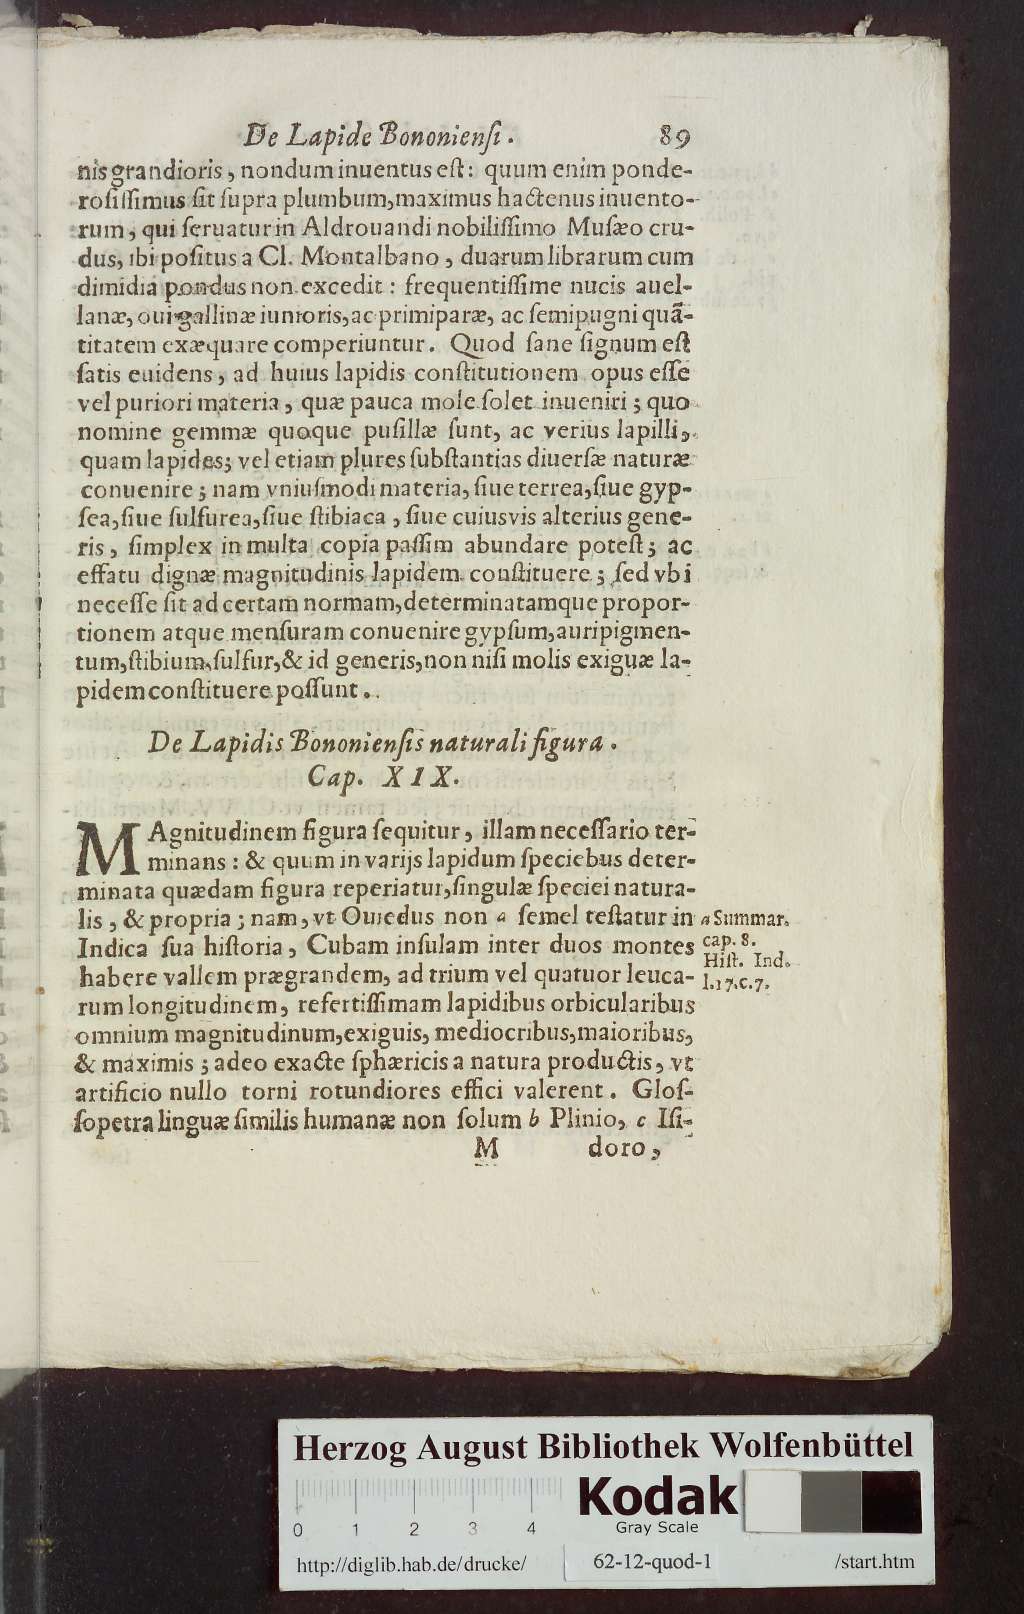 De Lapide Bononiensi. 89
nis grandioris, nondum inuentus est: quum enim ponde-
rosissimus sit supra plumbum, maximus hactenus inuento-
rum, qui seruatur in Aldrouandi nobilissimo Musæo cru-
dus, ibi positus a Cl. Montalbano, duarum librarum cum
dimidiá pondus non excedit: frequentissime nucis auel-
lanæ, oui gallinæ iunioris, ac primiparæ, ac semipugni quã-
titatem exæquare comperiuntur. Quod sane signum est
satis euidens, ad huius lapidis constitutionem opus esse
vel puriori materia, quæ pauca mole solet inueniri; quo
nomine gemmæ quoque pusillæ sunt, ac verius lapilli,
quam lapides; vel etiam plures substantias diuersæ naturæ
conuenire; nam vniusmodi materia, siue terrea, siue gyp-
sea, siue sulfurea, siue stibiaca, siue cuiusvis alterius gene-
ris, simplex in multa copia passim abundare potest; ac
effatu dignæ magnitudinis lapidem constituere; sed vbi
necesse sit ad certam normam, determinatamque propor-
tionem atque mensuram conuenire gypsum, auripigmen-
tum, stibium, sulfur, & id generis, non nisi molis exiguæ la-
pidem constituere possunt.
De Lapidis Bononiensis naturali figura.
Cap. XIX.
MAgnitudinem figura sequitur, illam necessario ter-
minans: & quum in varijs lapidum speciebus deter-
minata quædam figura reperiatur, singulæ speciei natura-
lis, & propria; nam, vt Ouiedus non a semel testatur in
Indica sua historia, Cubam insulam inter duos montes
habere vallem prægrandem, ad trium vel quatuor leuca-
rum longitudinem, refertissimam lapidibus orbicularibus
omnium magnitudinum, exiguis, mediocribus, maioribus,
& maximis; adeo exacte sphæricis a natura productis, vt
artificio nullo torni rotundiores effici valerent. Glos-
sopetra linguæ similis humanæ non solum b Plinio, c Isi-
M doro,
a Summar.
cap. 8.
Hist. Ind.
l. 17. c. 7.
Herzog August Bibliothek Wolfenbüttel
0 1 2 3 4
Kodak
Gray Scale
http://diglib.hab.de/drucke/ 62-12-quod-1 /start.htm